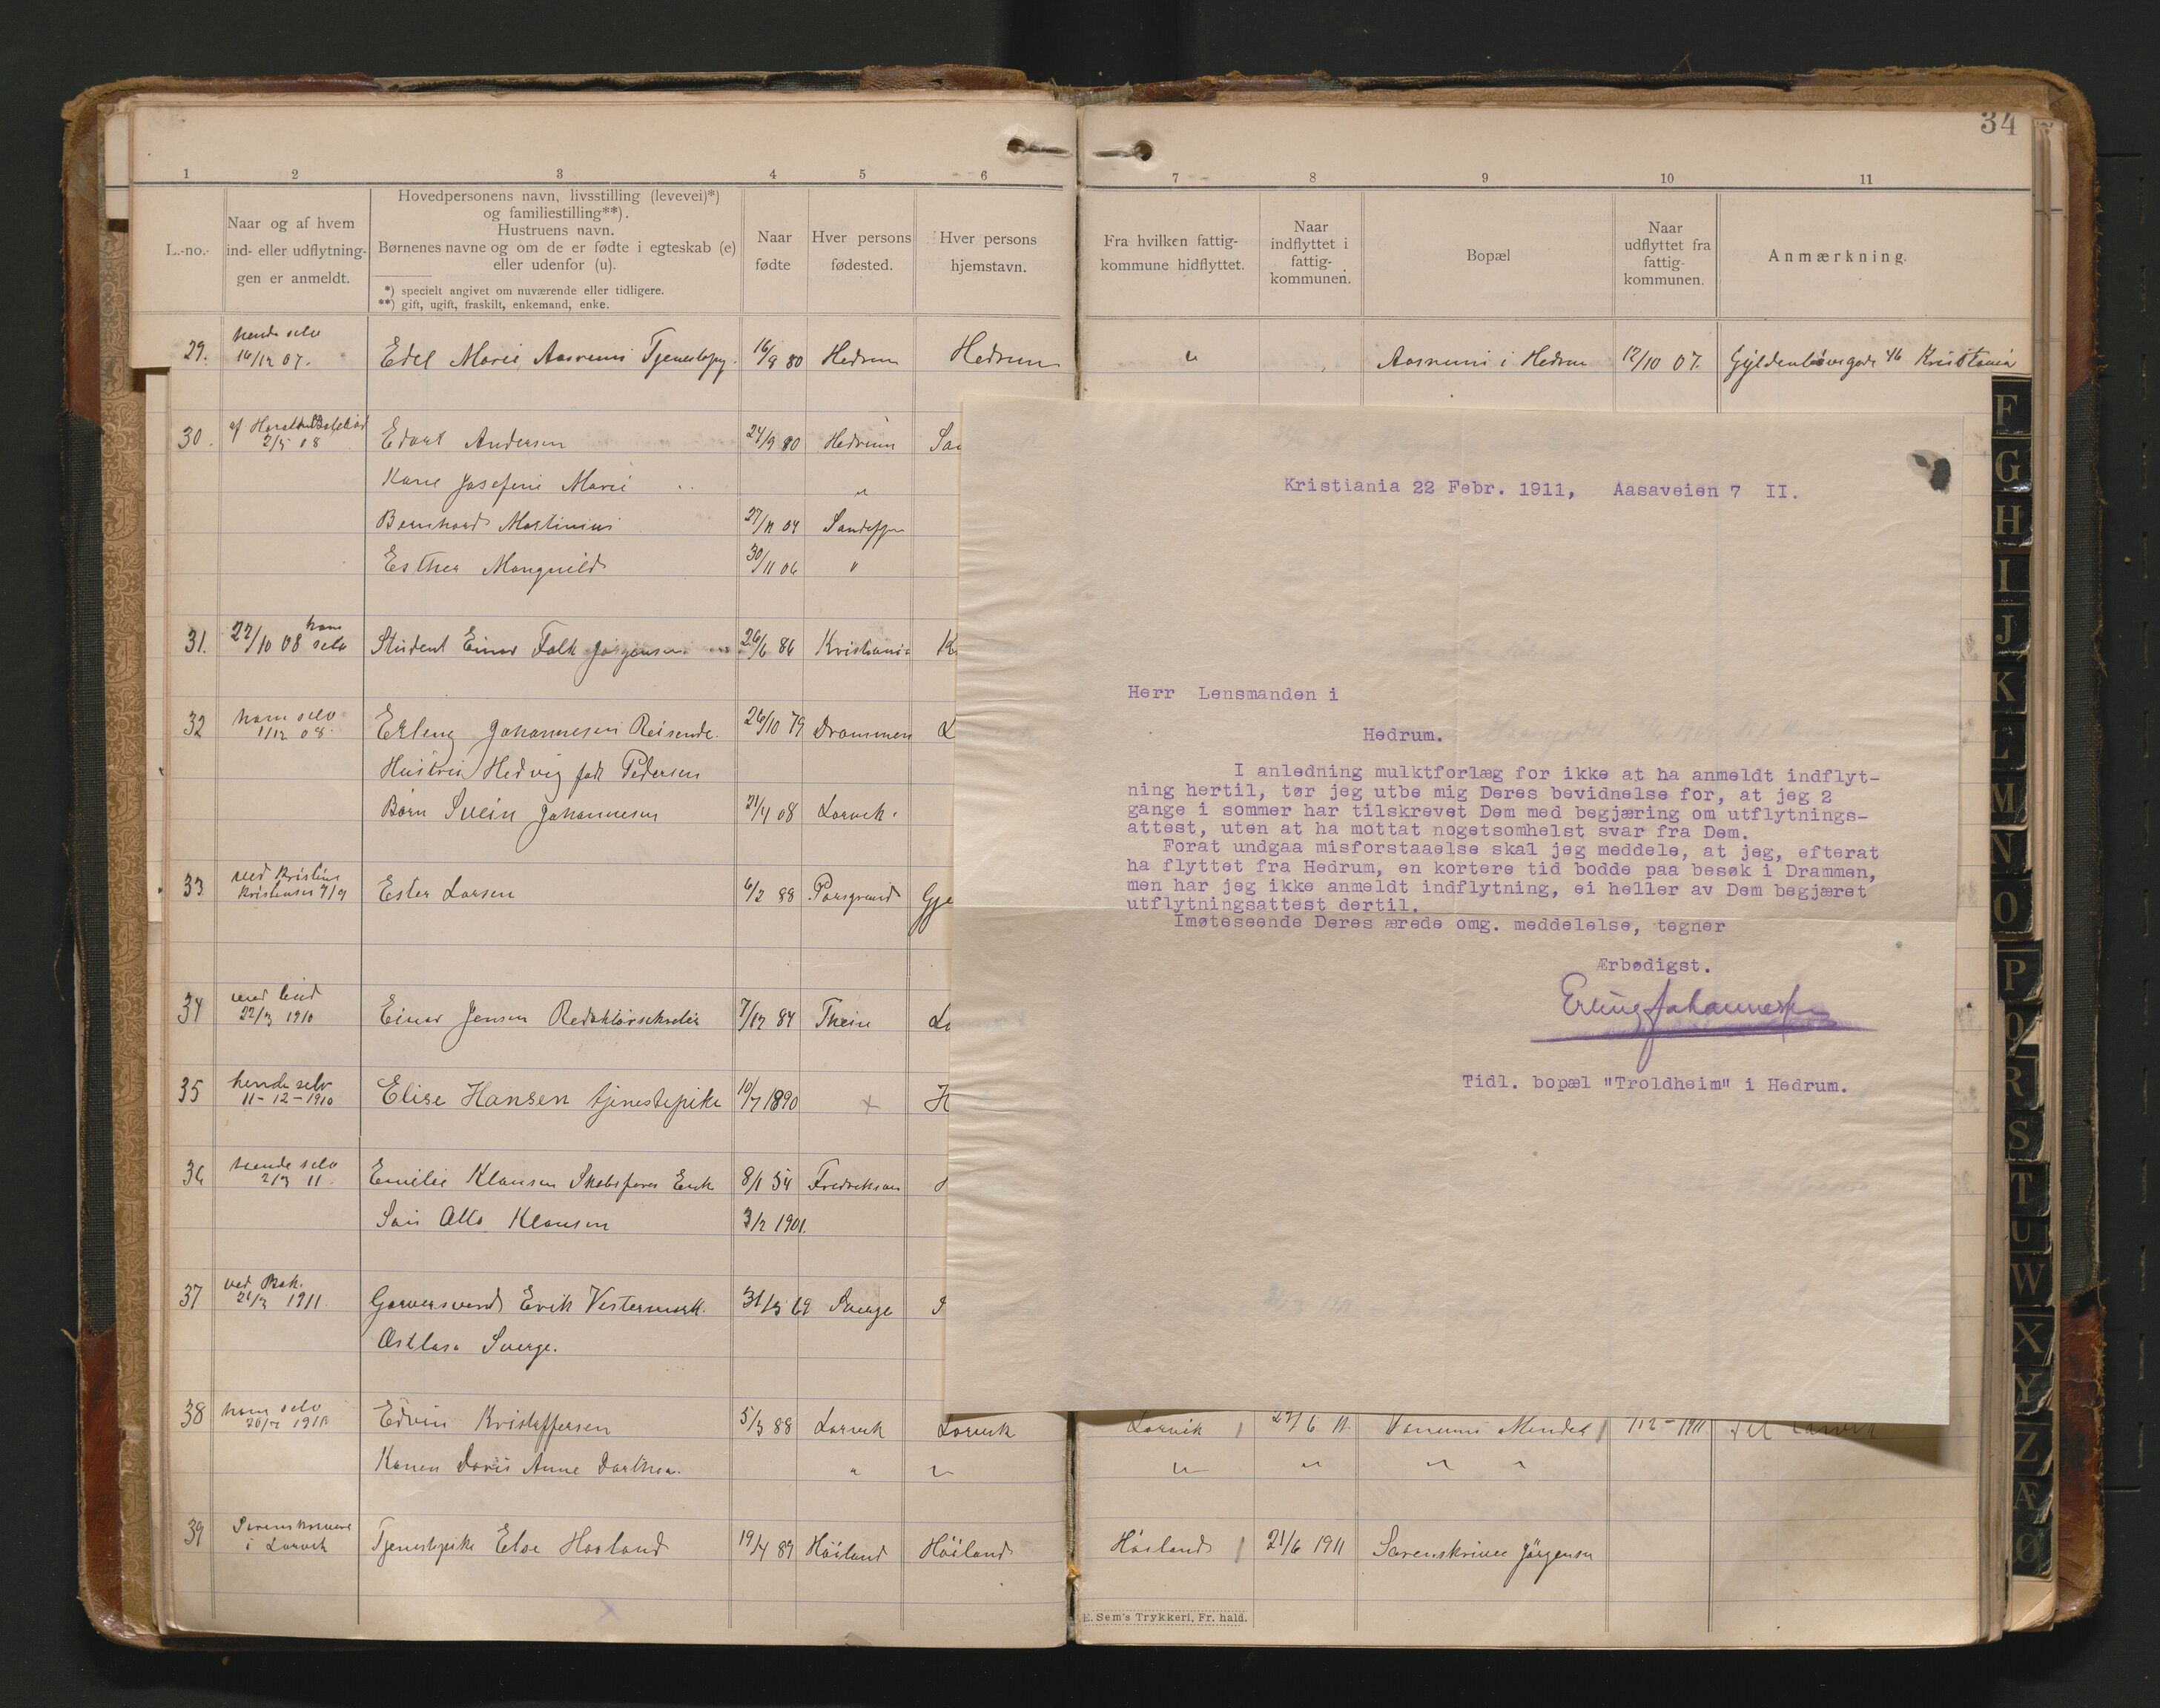 34
1 2 3 4 5 6 7 8 9 10 11
L.-no.
Naar og af hvem
ind- eller udflytnin-
gen er anmeldt.
Hovedpersonens navn, livsstilling (levevei)*)
og familiestilling**).
Hustruens navn.
Børnenes navne og om de er fødte i egteskab (e)
eller udenfor (u).
*) specielt angivet om nuværende eller tidligere.
**) gift, ugift, fraskilt, enkemand, enke.
Naar
fødte
Hver persons
fødested.
Hver persons
hjemstavn.
Fra hvilken fattig-
kommune hidflyttet.
Naar
indflyttet i
fattig-
kommunen.
Bopæl
Naar
udflyttet fra
fattig-
kommunen.
Anmærkning.
29. hende selv 16/12 07. Edel Marie Aasrumi Tjenestepg. 16/9 80 Hedrum Hedrum " Aasrumi i Hedrum 12/10 07. Gyldenløvesgade 46 Kristiania
30. 2/5 08 Edvart Andersen 24/9 80 Hedrum
Kone Josefine Marie "
Bernhard Martinius 27/11 04 Sandefj
Esther Mangnild 30/11 06 "
31. 27/10 08 ham selv Student Einar Falk Jørgensen 26/6 86 Kristiania
32 ham selv 1/12 08 Erling Johannesen Reisende. 26/10 79 Drammen
Hustru Hedvig født Pedersen
Børn Svein Johannesen 21/4 08 Larvik.
33 ved Kristine Kristensen 9/9 Ester Larsen 6/2 88 Porsgrund
34 22/3 1910 Einar Jensen 7/12 84
35 hende selv 11-12-1910 Elise Hansen tjenestepike 10/7 1890 x
36 hende selv 2/3 11. Emilie Klausen Skibsfører Enk 8/1 54
Søn Otto Klausen 3/2 1901.
37 21/3 1911. Garversvend Erik Vestermark. 31/3 69 Sverge
Sverge.
38 ham selv Edvin Kristoffersen 5/3 88 Larvik Larvik Larvik 27/6 11. 7/12-1911 Til Larvik
Konen Anne Dorthea. " " " " " "
39 Sorenskrivere i Larvik Tjenestepike Else Haaland 19/4 89 Høiland Høiland Høiland 21/6 1911 Sorenskriver Jørgensen
E. Sem's Trykkeri, Fr. hald.
Kristiania 22 Febr. 1911, Aasaveien 7 II.
Herr Lensmanden i
Hedrum.
I anledning mulktforlæg for ikke at ha anmeldt indflyt-
ning hertil, tør jeg utbe mig Deres bevidnelse for, at jeg 2
gange i sommer har tilskrevet Dem med begjæring om utflytnings-
attest, uten at ha mottat nogetsomhelst svar fra Dem.
Forat undgaa misforstaaelse skal jeg meddele, at jeg, efterat
ha flyttet fra Hedrum, en kortere tid bodde paa besøk i Drammen,
men har jeg ikke anmeldt indflytning, ei heller av Dem begjæret
utflytningsattest dertil.
Imøteseende Deres ærede omg. meddelelse, tegner
Ærbødigst.
Erling Johannesen
Tidl. bopæl "Troldheim" i Hedrum.
F
G
H
I
J
K
L
M
N
O
P
Q
R
S
T
U
W
X
Y
Z
Æ
Ø